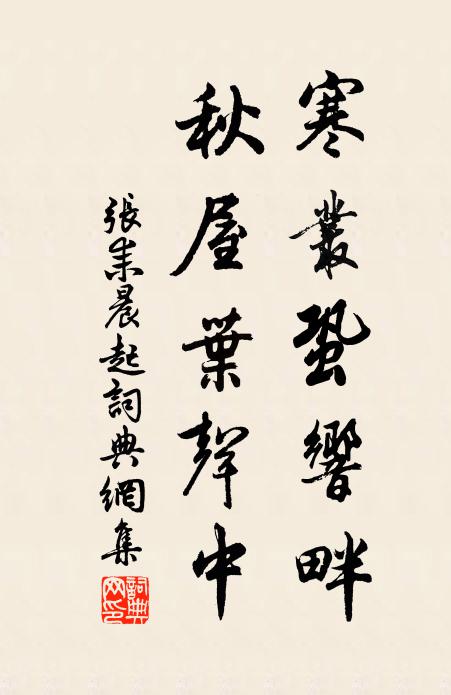 寒叢蛩響畔
秋屋葉聲中
張耒晨起詞典網集
詞典网印